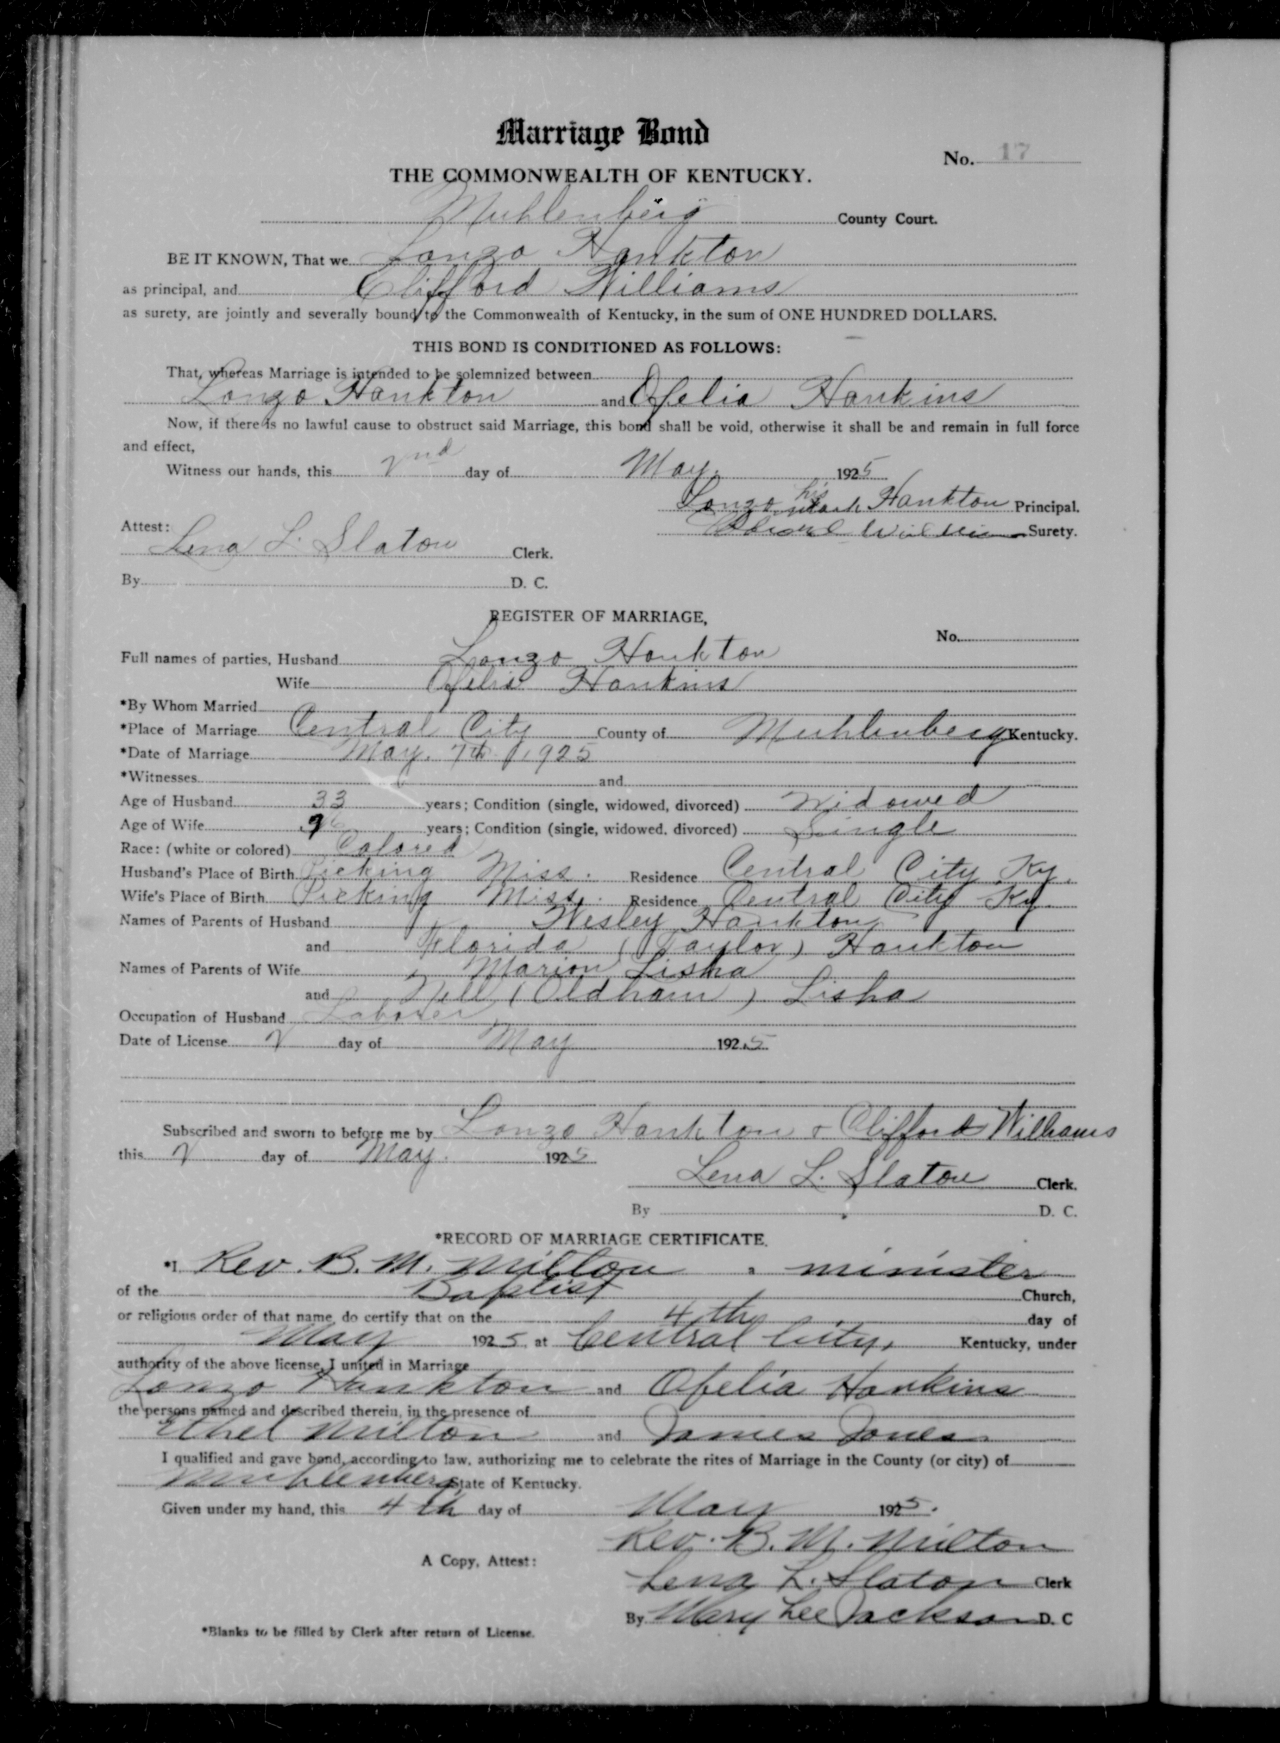 Marriage Bond
No. 17
THE COMMONWEALTH OF KENTUCKY.
Muhlenberg County Court.
BE IT KNOWN, That we Lonzo Hankton
as principal, and Clifford Williams
as surety, are jointly and severally bound to the Commonwealth of Kentucky, in the sum of ONE HUNDRED DOLLARS.
THIS BOND IS CONDITIONED AS FOLLOWS:
That, whereas Marriage is intended to be solemnized between
Lonzo Hankton and Ofelia Hankins
Now, if there is no lawful cause to obstruct said Marriage, this bond shall be void, otherwise it shall be and remain in full force
and effect,
Witness our hands, this 2nd day of May 1925
Lonzo his mark Hankton Principal.
Surety.
Attest:
Lena L. Slaton Clerk.
By D. C.
REGISTER OF MARRIAGE,
No.
Full names of parties, Husband Lonzo Hankton
Wife Ofelia Hankins
*By Whom Married
*Place of Marriage Central City County of Muhlenberg Kentucky.
*Date of Marriage May. 7th, 1925
*Witnesses and
Age of Husband 33 years; Condition (single, widowed, divorced) Widowed
Age of Wife years; Condition (single, widowed, divorced) Single
Race: (white or colored) Colored
Husband's Place of Birth Picking Miss. Residence Central City Ky.
Wife's Place of Birth Picking Miss. Residence Central City Ky.
Names of Parents of Husband Wesley Hankton
and Florida (Taylor) Hankton
Names of Parents of Wife Marion Lisha
and Nell (Oldham) Lisha
Occupation of Husband Laborer
Date of License 2 day of May 1925
Subscribed and sworn to before me by Lonzo Hankton & Clifford Williams
this 2 day of May. 1925
Lena L. Slaton Clerk.
By D. C.
*RECORD OF MARRIAGE CERTIFICATE.
*I, Rev. B. M. Milton a minister
of the Baptist Church,
or religious order of that name, do certify that on the 4th day of
May 1925 at Central City, Kentucky, under
authority of the above license, I united in Marriage
Lonzo Hankton and Ofelia Hankins
the persons named and described therein, in the presence of
Ethel Milton and James Jones
I qualified and gave bond, according to law, authorizing me to celebrate the rites of Marriage in the County (or city) of
Muhlenberg State of Kentucky.
Given under my hand, this 4th day of May 1925.
Rev. B. M. Milton
A Copy, Attest:
Lena L. Slaton Clerk
By Mary Lee Jackson D. C
*Blanks to be filled by Clerk after return of License.